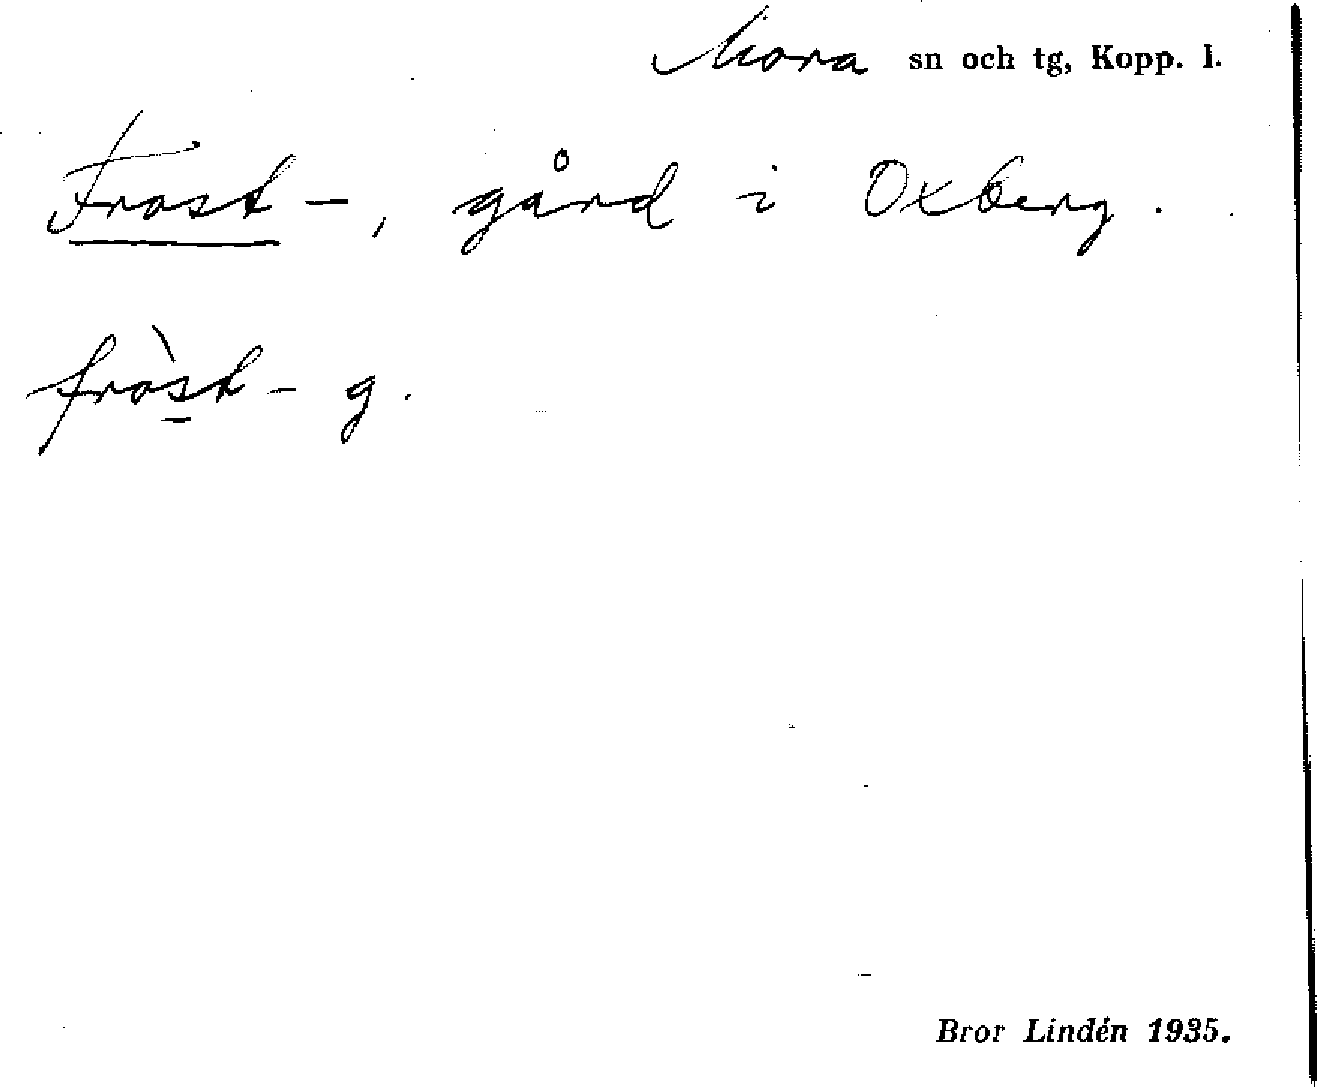 Mora sn och tg, Kopp. l.
Frost-, gård i Oxberg.
fròst- g.
Bror Lindén 1935.